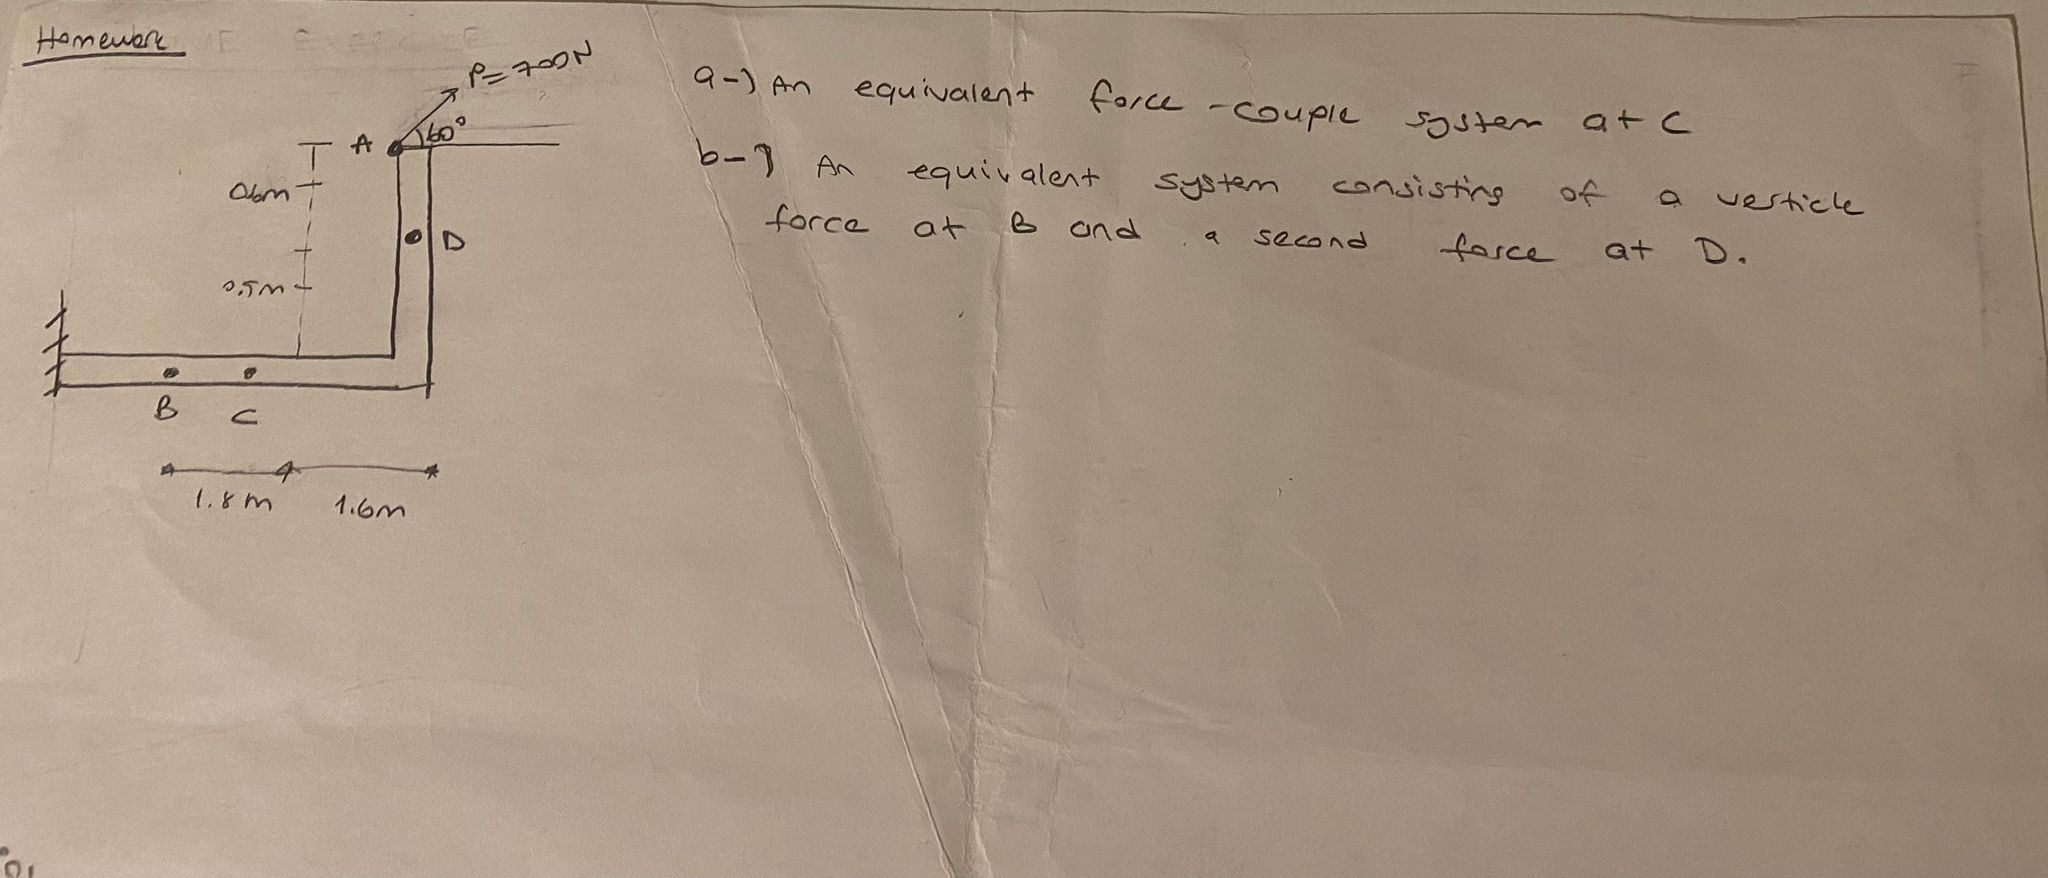 Homework
P=700N
A
60°
0.6m
D
0.5m
B
C
1.8m
1.6m
a-) An equivalent force-couple system at C
b-) An equivalent system consisting of a verticle
force at B and a second force at D.